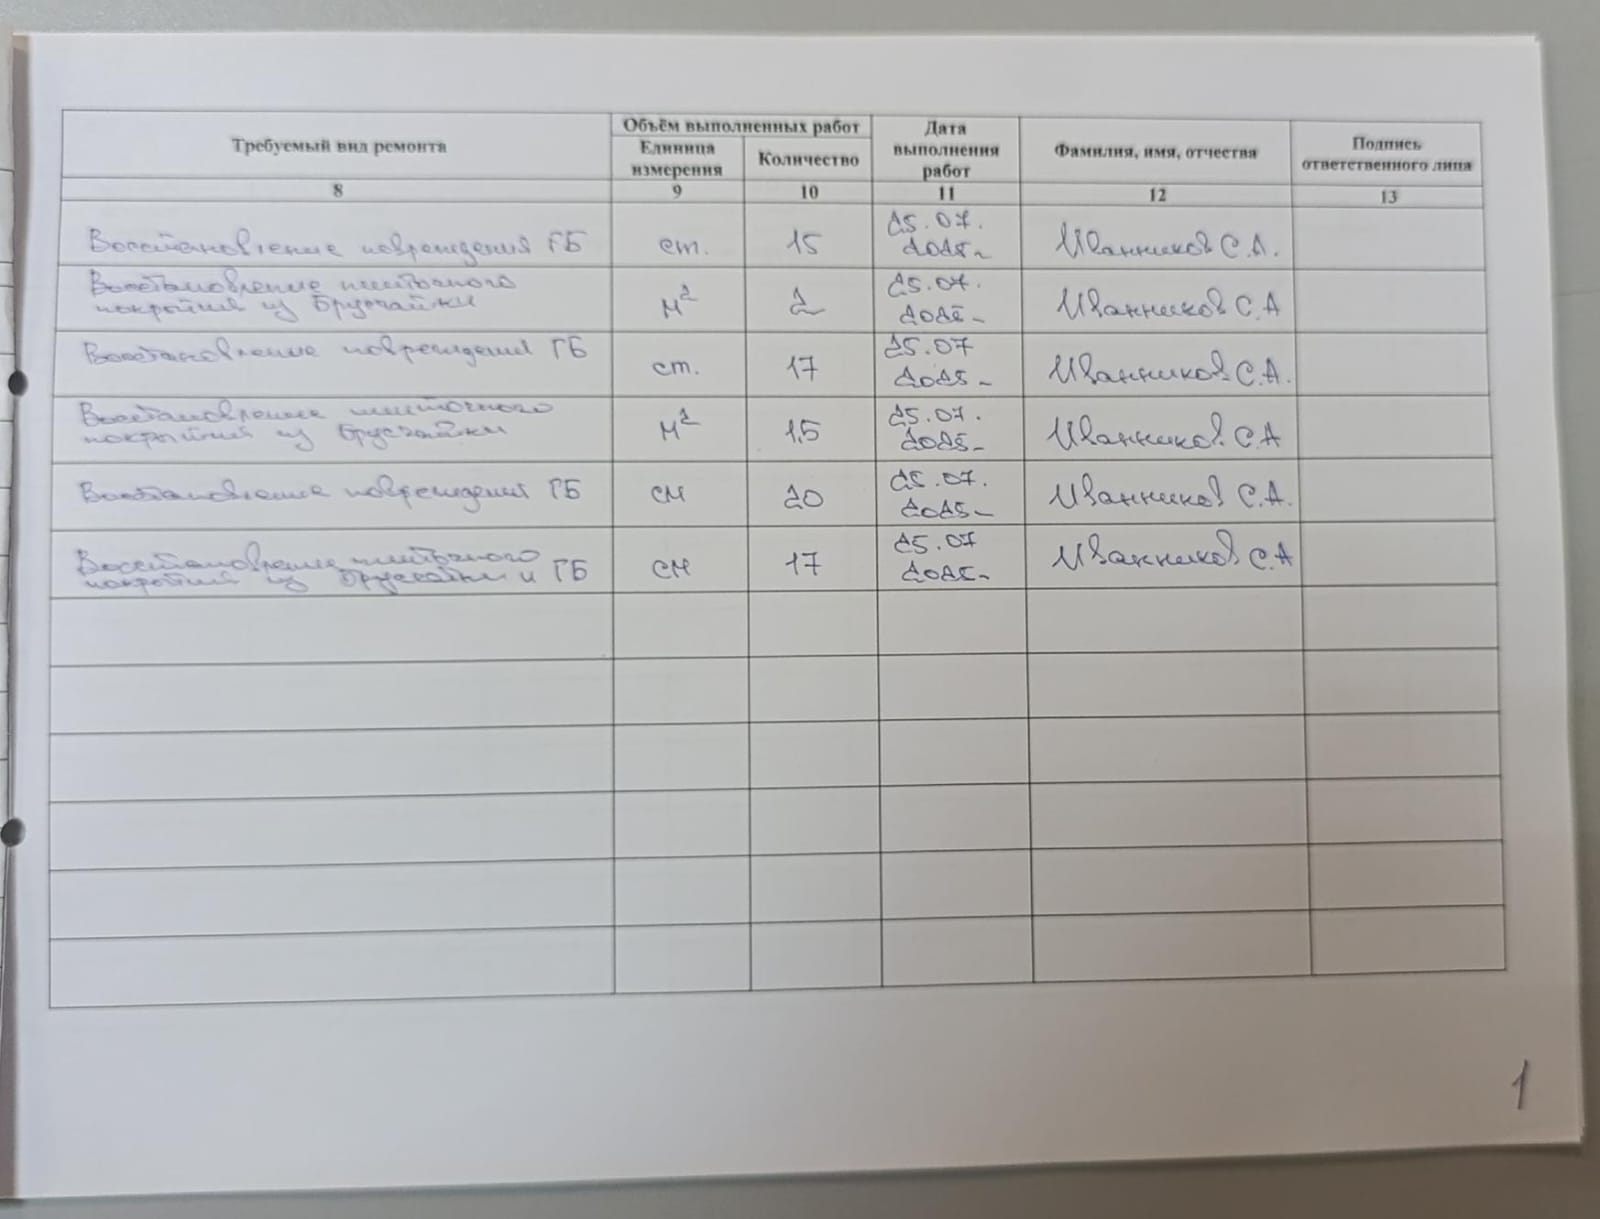 Требуемый вид ремонта
Объём выполненных работ
Единица
измерения
Количество
Дата
выполнения
работ
Фамилия, имя, отчества
Подпись
ответственного лица
8 9 10 11 12 13
Восстановление повреждения ГБ ст. 15 25.07.
2025 Иванников С.А.
Восстановление плиточного
покрытия из Брусчайки м² 2 25.07.
2025 Иванников С.А
Восстановление повреждения ГБ ст. 17 25.07
2025 Иванников С.А.
Восстановление плиточного
покрытия из Брусчайки м² 1.5 25.07.
2025 Иванников С.А
Восстановление повреждения ГБ см 20 25.07.
2025 Иванников С.А.
Восстановление плиточного
покрытия из Брусчайки и ГБ см 17 25.07
2025 Иванников С.А
1